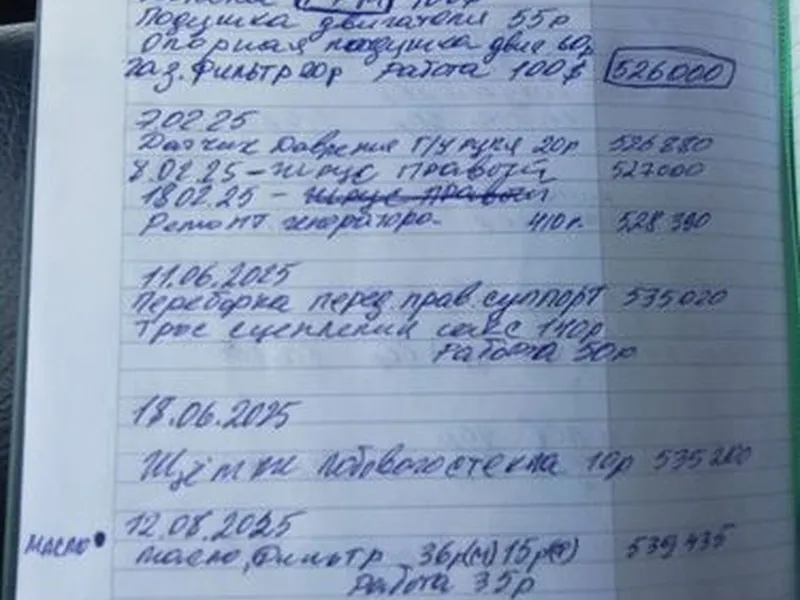 ГРМ 100р
Подушка двигателя 55р
Опорная подушка двиг 60р
Газ. фильтр 20р Работа 100$ 526000
7.02.25
Датчик давления г/у руля 20р 526880
8.02.25 - правый 527000
18.02.25 - правый
Ремонт генератора 410р. 528390
11.06.2025
Переборка перед. прав. суппорт 535020
Трос сцепления сакс 140р
Работа 50р
18.06.2025
Щётки лобового стекла 10р 535260
12.08.2025
масло • масло, фильтр 36р(м) 15р(ф) 539435
Работа 35р